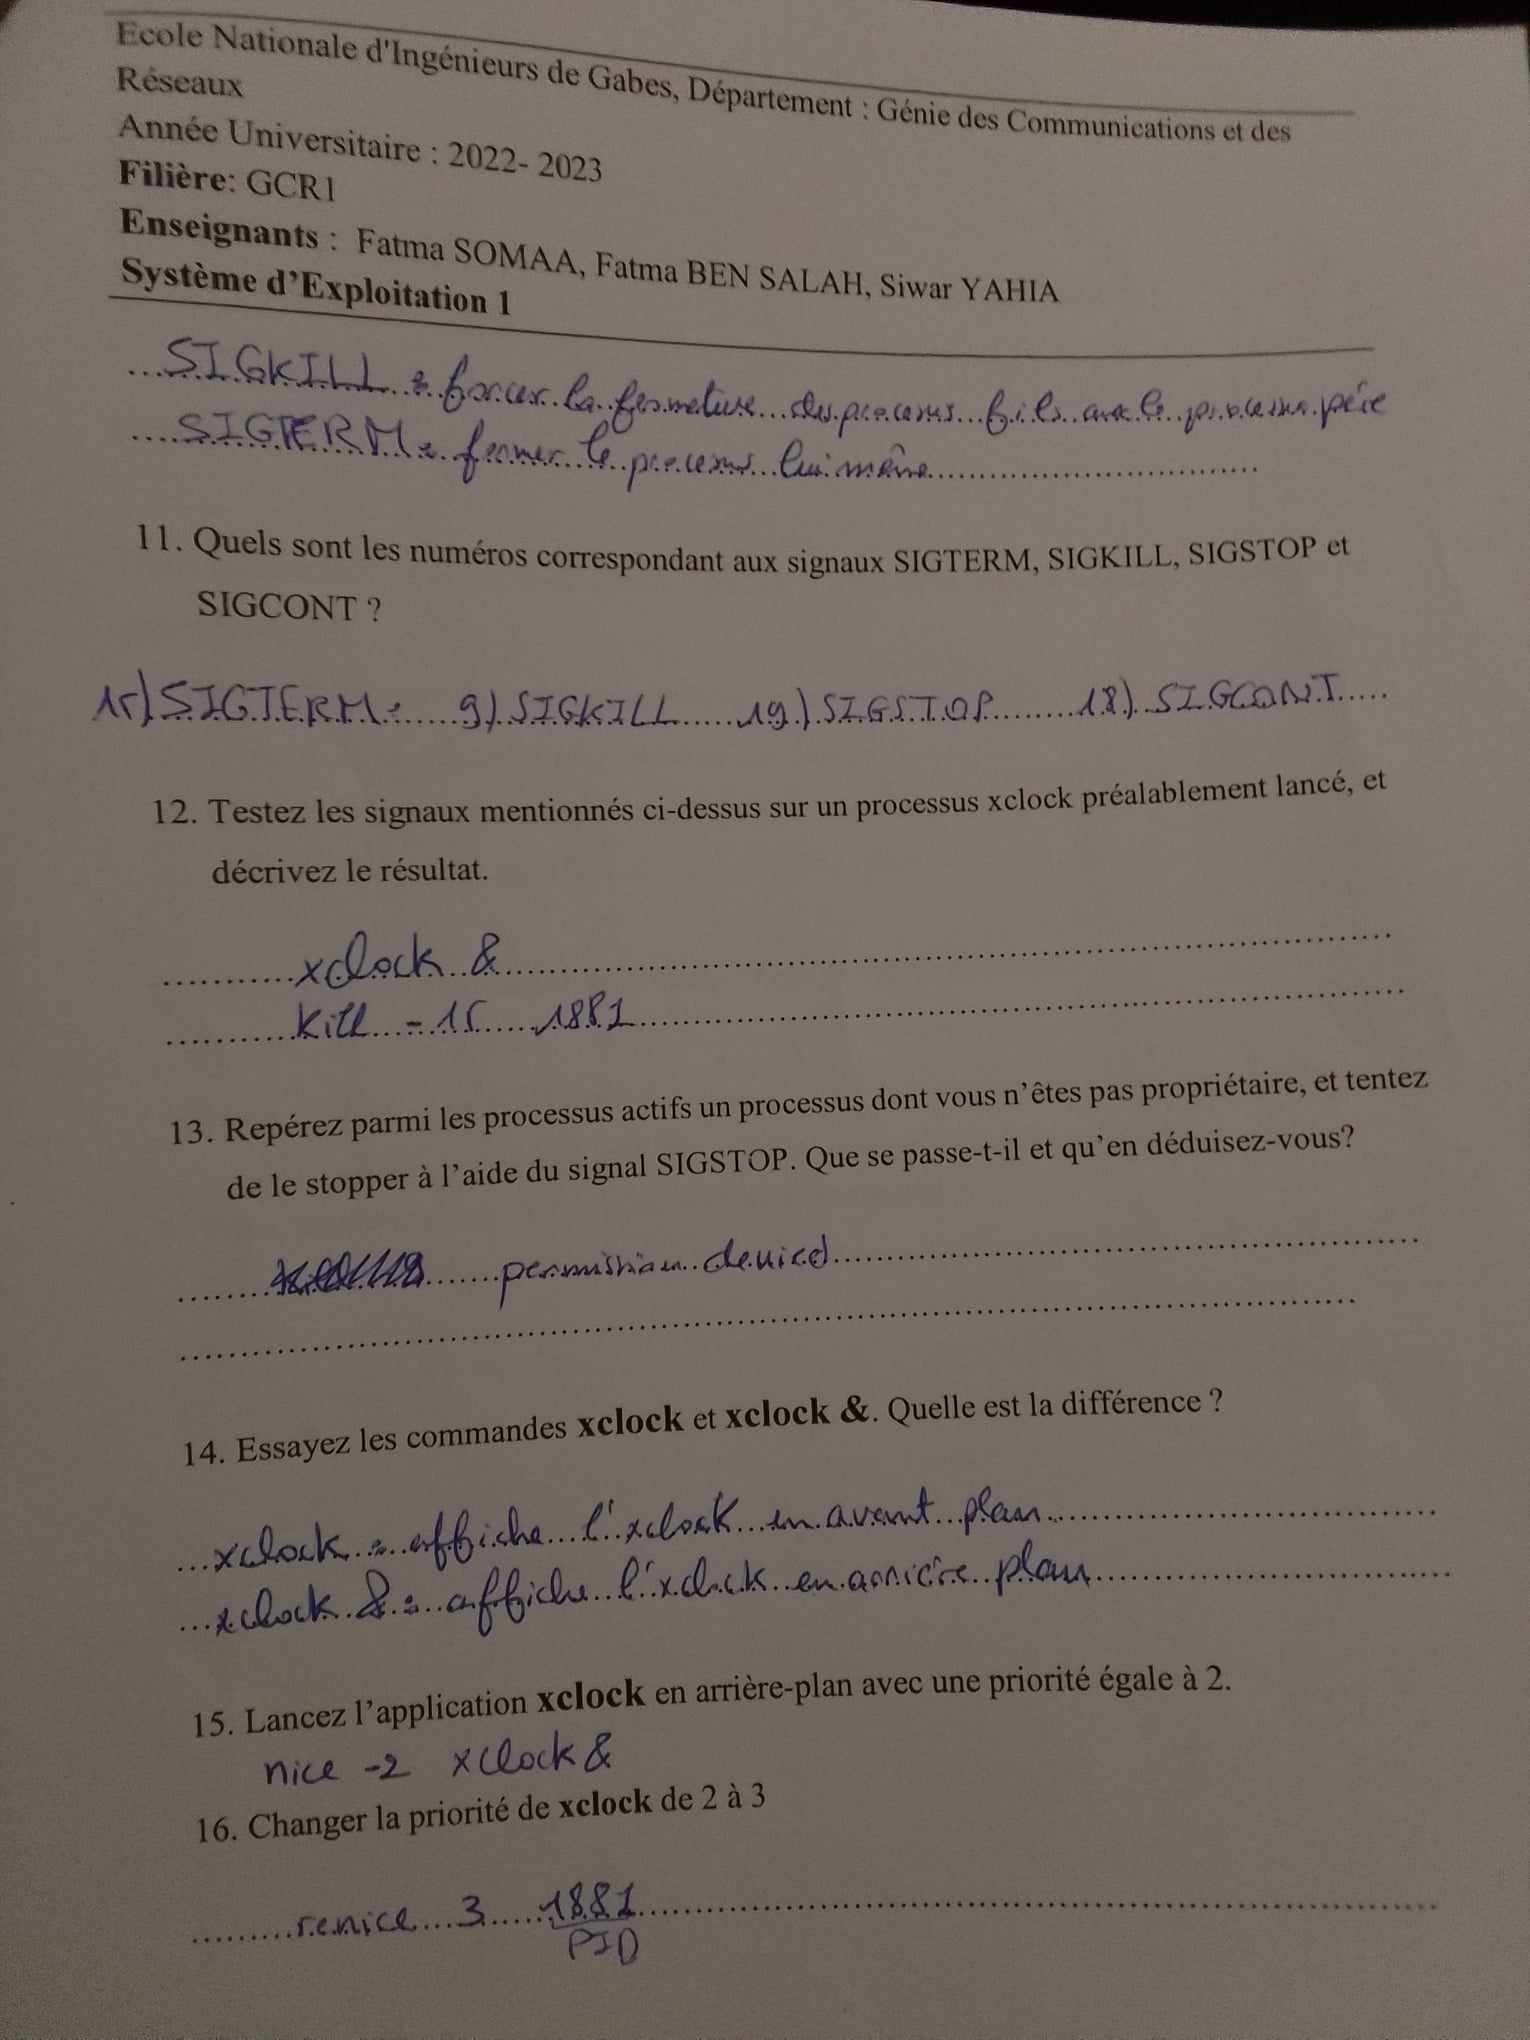 Ecole Nationale d'Ingénieurs de Gabes, Département : Génie des Communications et des
Réseaux
Année Universitaire : 2022- 2023
Filière: GCR1
Enseignants : Fatma SOMAA, Fatma BEN SALAH, Siwar YAHIA
Système d'Exploitation 1
SIGKILL : forcer la fermeture des processus fils avec le processus père
SIGTERM : fermer le processus lui même
11. Quels sont les numéros correspondant aux signaux SIGTERM, SIGKILL, SIGSTOP et
SIGCONT ?
15) SIGTERM : 9) SIGKILL 19) SIGSTOP 18) SIGCONT
12. Testez les signaux mentionnés ci-dessus sur un processus xclock préalablement lancé, et
décrivez le résultat.
xclock &
Kill -15 1881
13. Repérez parmi les processus actifs un processus dont vous n'êtes pas propriétaire, et tentez
de le stopper à l'aide du signal SIGSTOP. Que se passe-t-il et qu'en déduisez-vous?
permission denied
14. Essayez les commandes xclock et xclock &. Quelle est la différence ?
xclock : affiche l'xclock en avant plan
xclock & : affiche l'xclock en arrière plan
15. Lancez l'application xclock en arrière-plan avec une priorité égale à 2.
nice -2 xclock &
16. Changer la priorité de xclock de 2 à 3
renice 3 1881
PID